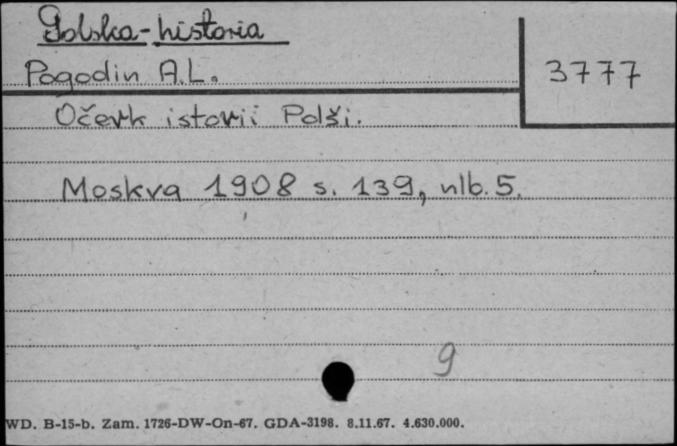 Polska-historia
Pogodin A.L.
3777
Očerk istorii Polši.
Moskva 1908 s. 139, nlb. 5.
9
WD. B-15-b. Zam. 1726-DW-On-67. GDA-3198. 8.11.67. 4.630.000.